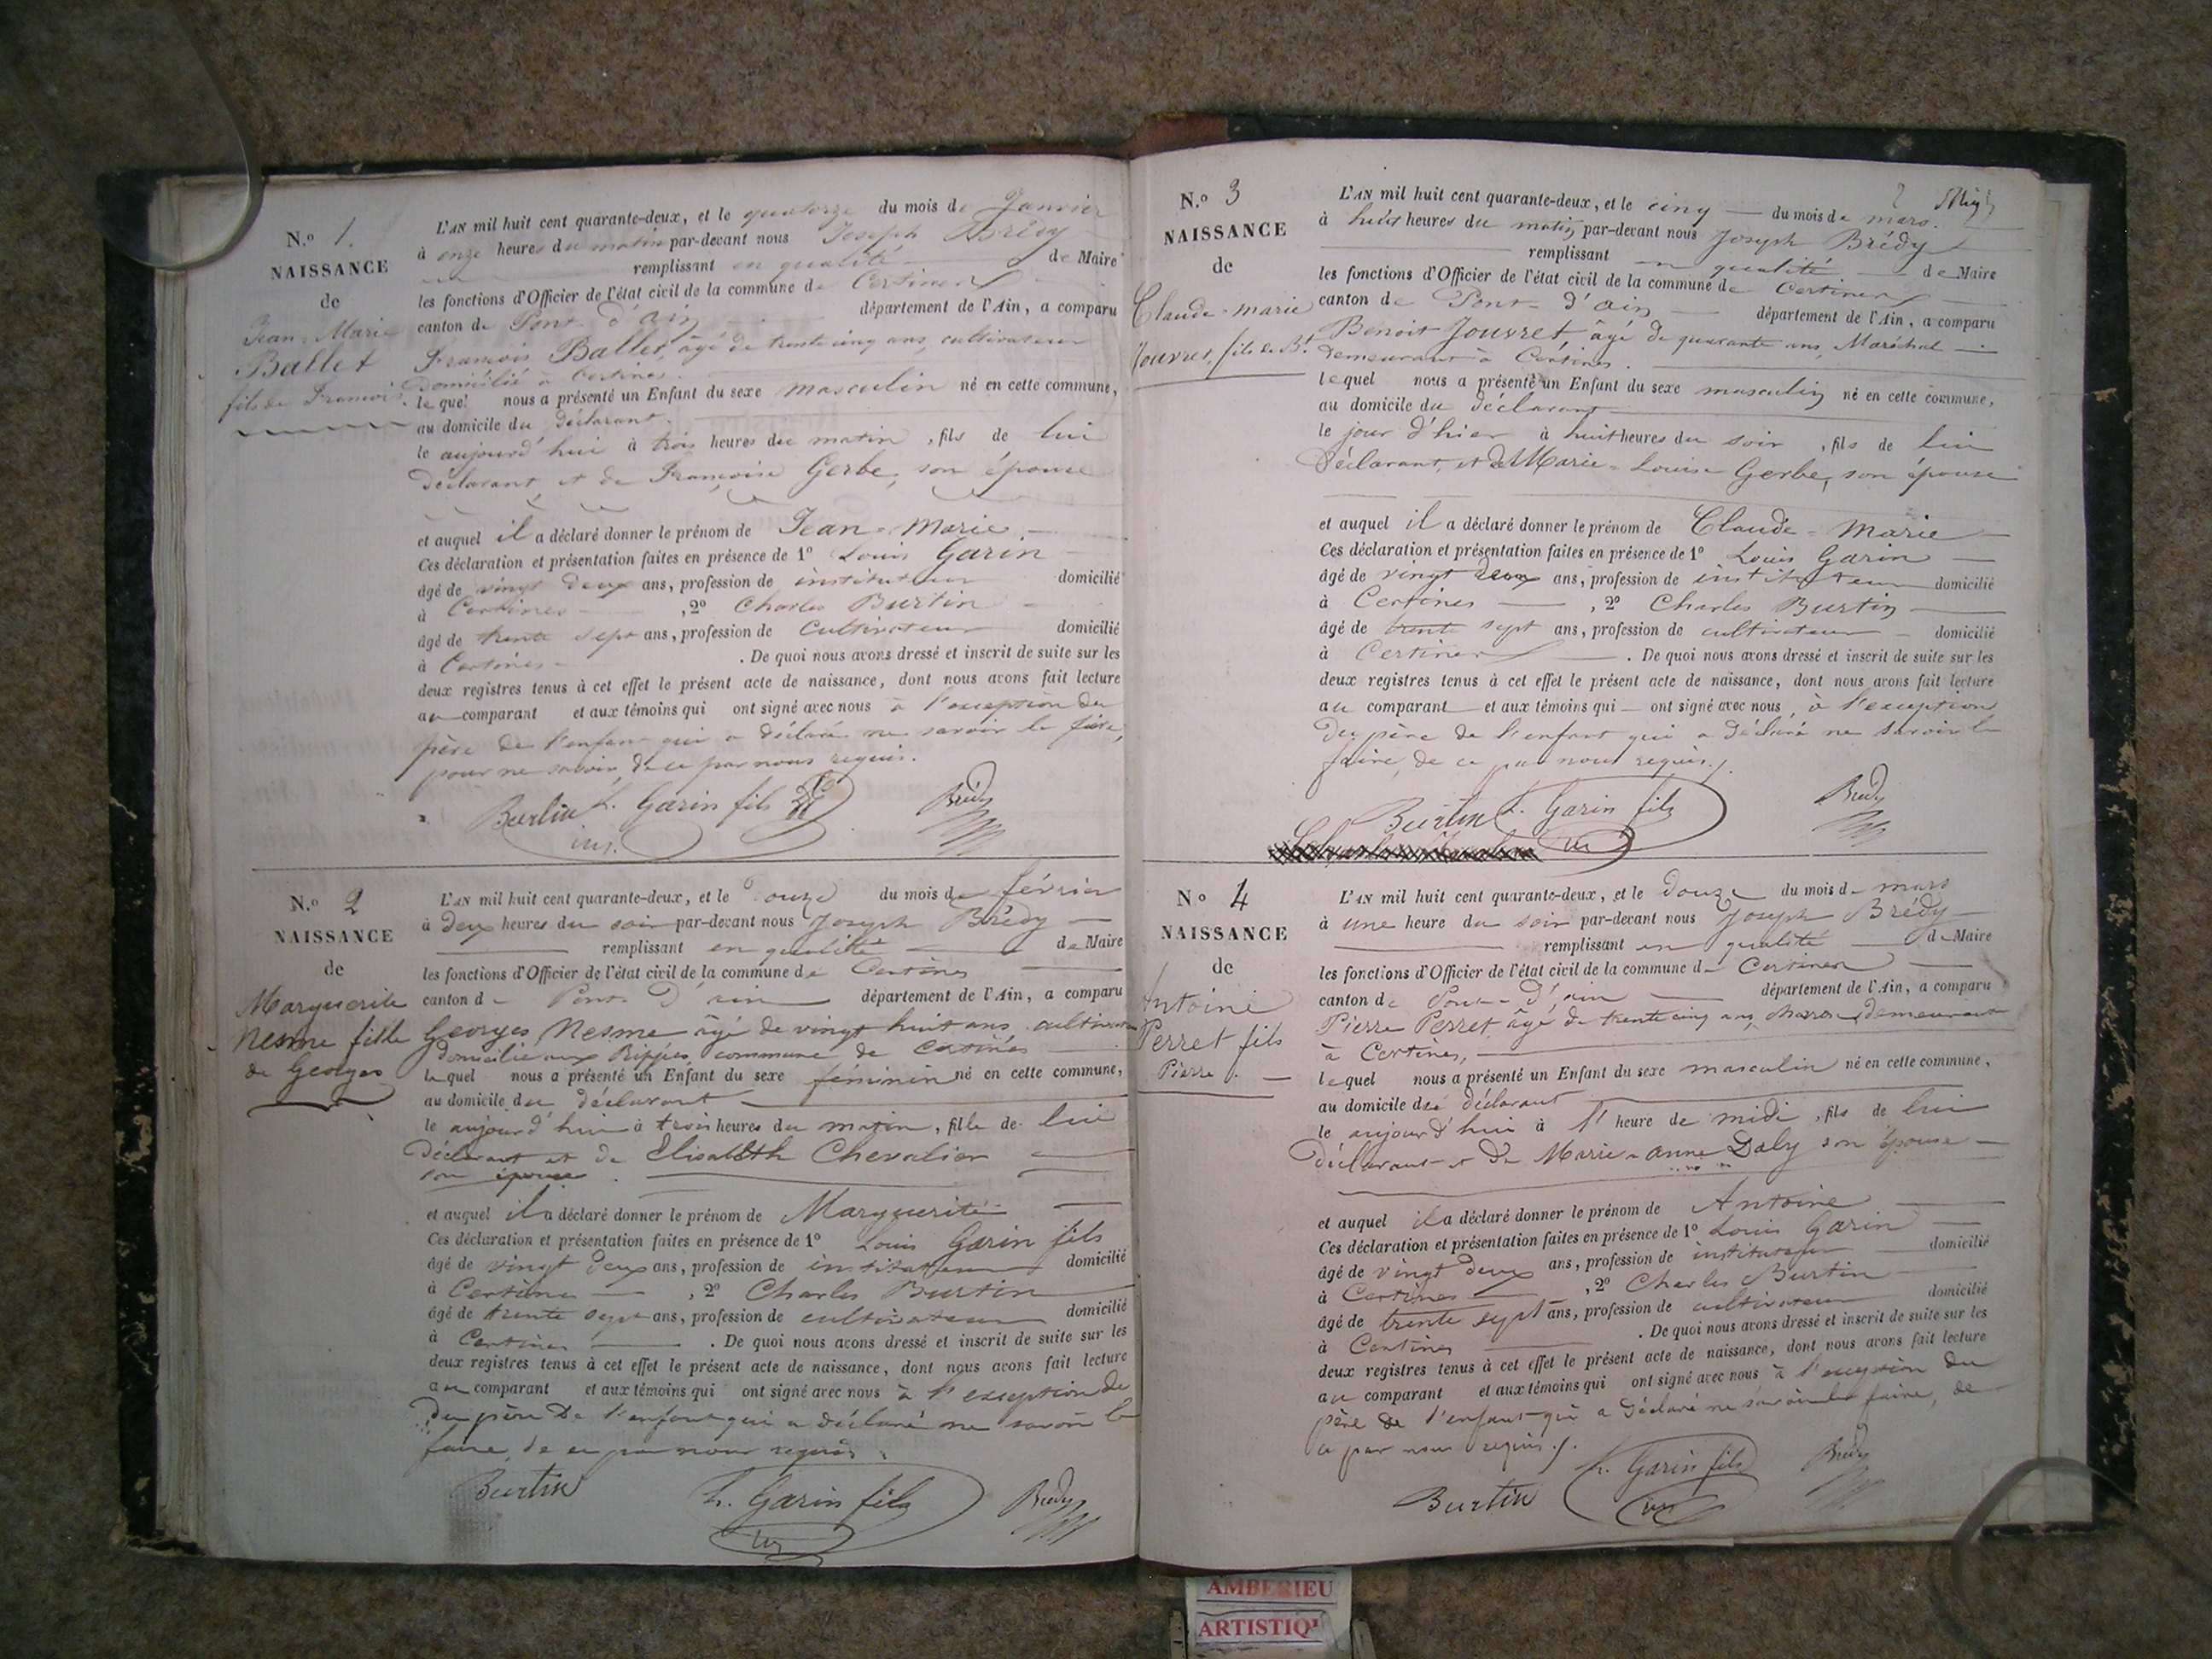 N.º 1.
NAISSANCE
de
Jean-Marie
Ballet
fils de François.
L'AN mil huit cent quarante-deux, et le quatorze du mois de Janvier
à onze heures du matin par-devant nous Joseph Brédy
remplissant en qualité de Maire
les fonctions d'Officier de l'état civil de la commune de Certines
canton de Pont d'ain département de l'Ain, a comparu
François Ballet, âgé de trente cinq ans, cultivateur
domicilié à Certines.
lequel nous a présenté un Enfant du sexe masculin né en cette commune,
au domicile du déclarant.
le aujourd'hui à trois heures du matin, fils de lui
déclarant, et de Françoise Gerbe, son épouse
et auquel il a déclaré donner le prénom de Jean-Marie.
Ces déclaration et présentation faites en présence de 1º Louis Garin
âgé de vingt deux ans, profession de instituteur domicilié
à Certines, 2º Charles Burtin
âgé de trente sept ans, profession de Cultivateur domicilié
à Certines. De quoi nous avons dressé et inscrit de suite sur les
deux registres tenus à cet effet le présent acte de naissance, dont nous avons fait lecture
au comparant et aux témoins qui ont signé avec nous à l'exception du
père de l'enfant qui a déclaré ne savoir le faire,
pour ne savoir, de ce par nous requis.
Burtin L. Garin fils Brédy
ins.
N.º 2
NAISSANCE
de
Marguerite
Nesme fille
de Georges
L'AN mil huit cent quarante-deux, et le douze du mois de février
à deux heures du soir par-devant nous Joseph Brédy
remplissant en qualité de Maire
les fonctions d'Officier de l'état civil de la commune de Certines
canton de Pont d'ain département de l'Ain, a comparu
Georges Nesme âgé de vingt huit ans, cultivateur
domicilié aux Rippes, commune de Certines
lequel nous a présenté un Enfant du sexe féminin né en cette commune,
au domicile du déclarant
le aujourd'hui à trois heures du matin, fille de lui
déclarant et de Elisabeth Chevalier
son épouse.
et auquel il a déclaré donner le prénom de Marguerite
Ces déclaration et présentation faites en présence de 1º Louis Garin fils
âgé de vingt deux ans, profession de instituteur domicilié
à Certines, 2º Charles Burtin
âgé de trente sept ans, profession de cultivateur domicilié
à Certines. De quoi nous avons dressé et inscrit de suite sur les
deux registres tenus à cet effet le présent acte de naissance, dont nous avons fait lecture
au comparant et aux témoins qui ont signé avec nous à l'exception de
du père de l'enfant qui a déclaré ne savoir le
faire, de ce par nous requis.
Burtin L. Garin fils Brédy
N.º 3
NAISSANCE
de
Claude-marie
Jouvret, fils de Bt.
2
L'AN mil huit cent quarante-deux, et le cinq du mois de mars.
à huit heures du matin par-devant nous Joseph Brédy
remplissant en qualité de Maire
les fonctions d'Officier de l'état civil de la commune de Certines
canton de Pont-d'ain département de l'Ain, a comparu
Benoit Jouvret, âgé de quarante ans, Maréchal
demeurant à Certines.
lequel nous a présenté un Enfant du sexe masculin né en cette commune,
au domicile du déclarant
le jour d'hier à huit heures du soir, fils de lui
déclarant, et de Marie-Louise Gerbe, son épouse
et auquel il a déclaré donner le prénom de Claude-Marie
Ces déclaration et présentation faites en présence de 1º Louis Garin
âgé de vingt deux ans, profession de instituteur domicilié
à Certines, 2º Charles Burtin
âgé de trente sept ans, profession de cultivateur domicilié
à Certines. De quoi nous avons dressé et inscrit de suite sur les
deux registres tenus à cet effet le présent acte de naissance, dont nous avons fait lecture
au comparant et aux témoins qui ont signé avec nous, à l'exception
du père de l'enfant qui a déclaré ne savoir le
faire, de ce par nous requis./.
Burtin L. Garin fils Brédy
N.º 4
NAISSANCE
de
Antoine
Perret fils
Pierre.
L'AN mil huit cent quarante-deux, et le douze du mois de mars
à une heure du soir par-devant nous Joseph Brédy
remplissant en qualité de Maire
les fonctions d'Officier de l'état civil de la commune de Certines
canton de Pont-d'ain département de l'Ain, a comparu
Pierre Perret, âgé de trente cinq ans, demeurant
à Certines,
lequel nous a présenté un Enfant du sexe masculin né en cette commune,
au domicile du déclarant
le aujourd'hui à l'heure de midi, fils de lui
déclarant et de Marie-anne Daly son épouse
et auquel il a déclaré donner le prénom de Antoine
Ces déclaration et présentation faites en présence de 1º Louis Garin
âgé de vingt deux ans, profession de instituteur domicilié
à Certines, 2º Charles Burtin
âgé de trente sept ans, profession de cultivateur domicilié
à Certines. De quoi nous avons dressé et inscrit de suite sur les
deux registres tenus à cet effet le présent acte de naissance, dont nous avons fait lecture
au comparant et aux témoins qui ont signé avec nous à l'exception du
père de l'enfant qui a déclaré ne savoir le faire, de
ce par nous requis./.
Burtin L. Garin fils Brédy
AMBERIEU
ARTISTIQ